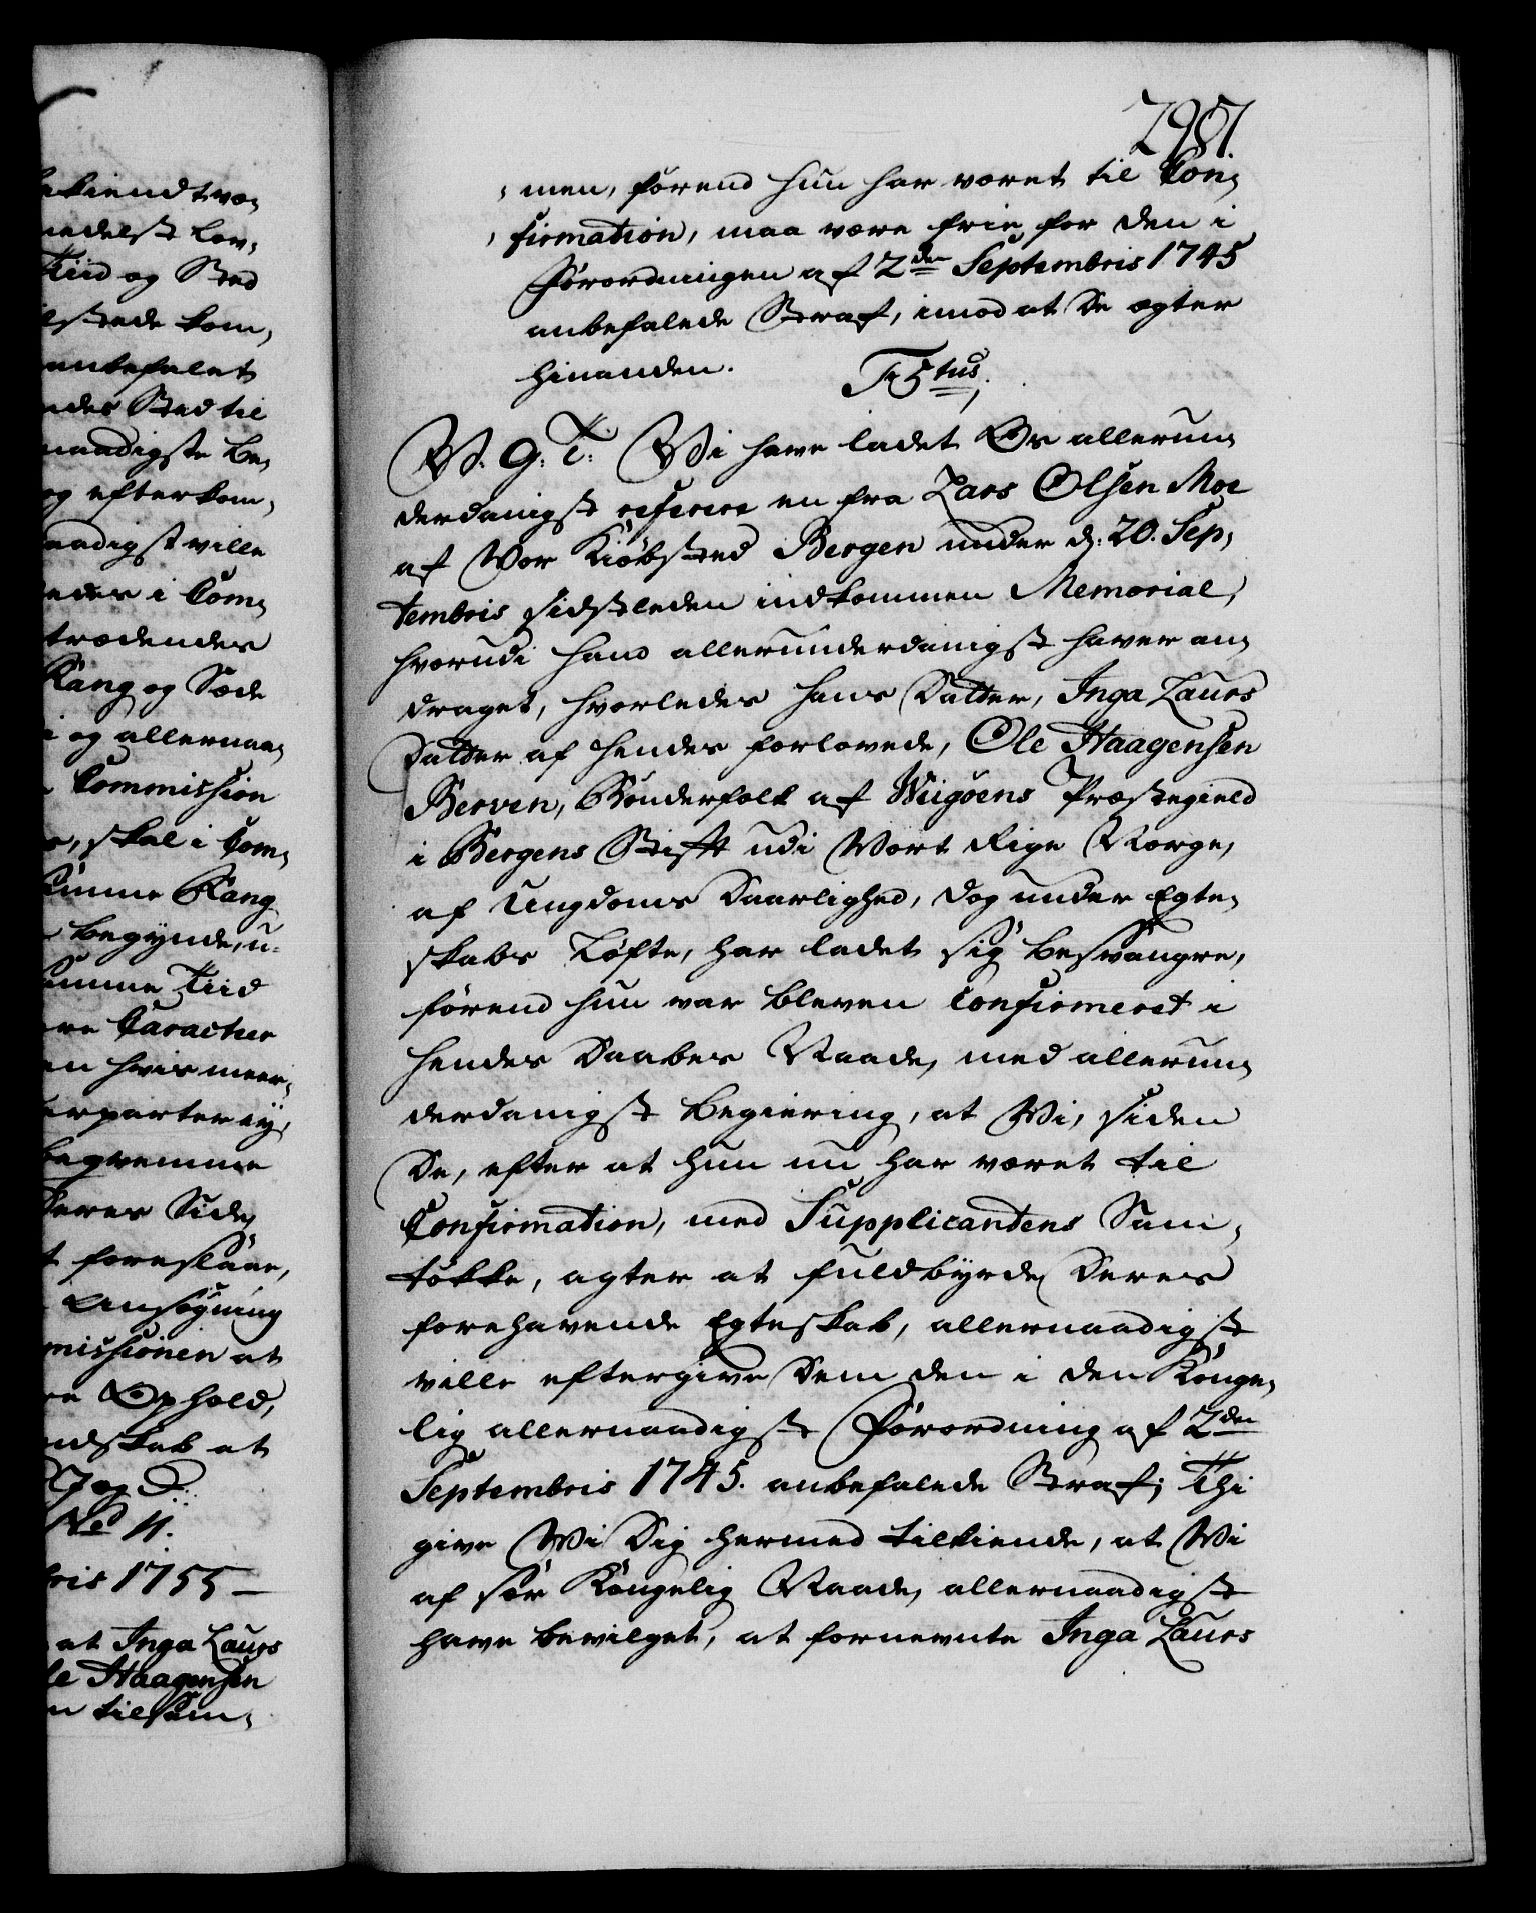 ekiendt væ,
medelst lov,
Tiid og Sted
lstede kom,
anbefalet
ndes Sted til
naadigste Be,
og efterkom,
naadigst ville
eder i Com,
trædendes
Rang og Sæde
i og allernaa,
Commission
, skal i Com,
kunne Rang
Begynde, u,
Tiid
re Caracteer
en hvis meer,
begvemme
Deres Side,
t foreslaae,
Ansøgning
missionen at
re Ophold,
ndskab at
No 11.
bris 1755 –
at Inga Laurs
le Haagensen
n tilsam,
295
men, førend hun har været til Con,
firmation, maa være frie for den i
Forordningen af 2den Septembris 1745
anbefalede Straf, imod at De ægter
hinanden.
F 5tus.
W. G. T. Wi have ladet Os allerun,
derdanigst referere en fra Lars Olsen Moe
af Wor Kiøbsted Bergen under d. 20. Sep,
tembris sidstleden indkommen Memorial,
hvorudi hand allerunderdanigst haver an,
draget, hvorledes hans Datter, Inga Laurs
Datter af hendes forlovede, Ole Haagensen
Berven, Bønderfolk af Wiigøens Præstegield
i Bergens Stift udi Wort Rige Norge,
af Ungdoms Daarlighed, dog under Egte,
skabs Løfte, har ladet sig besvangre,
førend hun var bleven Confirmeret i
hendes Daabes Naade, med allerun,
derdanigst Begiering, at Wi, siden
De, efter at hun nu har været til
Confirmation, med Supplicantens Sam,
tøkke, agter at fuldbyrde Deres
forehavende Egteskab, allernaadigst
ville eftergive Dem den i den Konge,
lig allernaadigste Forordning af 2den
Septembris 1745. anbefalede Straf; Thi
give Wi Dig hermed tilkiende, at Wi
af sær Kongelig Naade, allernaadigst
have bevilget, at fornevnte Inga Laurs